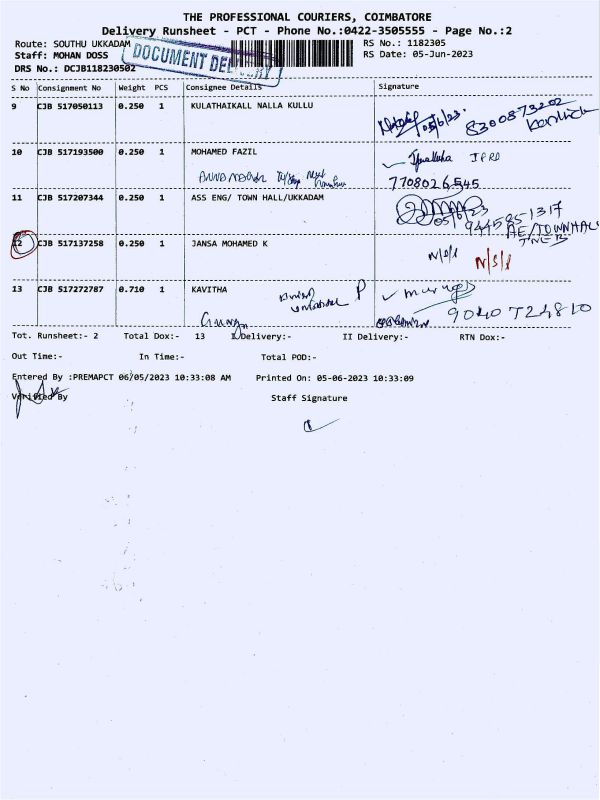 THE PROFESSIONAL COURIERS, COIMBATORE
Delivery Runsheet - PCT - Phone No.:0422-3505555 - Page No.:2
Route: SOUTHU UKKADAM RS No.: 1182305
Staff: MOHAN DOSS RS Date: 05-Jun-2023
DOCUMENT DELIVERY
DRS No.: DCJB118230502
S No Consignment No Weight PCS Consignee Details Signature
9 CJB 517050113 0.250 1 KULATHAIKALL NALLA KULLU
05/6/23 8300873202
10 CJB 517193500 0.250 1 MOHAMED FAZIL
7708026545
11 CJB 517207344 0.250 1 ASS ENG/ TOWN HALL/UKKADAM
05/6/23 9445851317
AE/TOWNHALL
TNEB
12 CJB 517137258 0.250 1 JANSA MOHAMED K
N/S/1 N/S/1
13 CJB 517272787 0.710 1 KAVITHA
P muruges
9040724810
Tot. Runsheet:- 2 Total Dox:- 13 I Delivery:- II Delivery:- RTN Dox:-
Out Time:- In Time:- Total POD:-
Entered By :PREMAPCT 06/05/2023 10:33:08 AM Printed On: 05-06-2023 10:33:09
Verified By Staff Signature